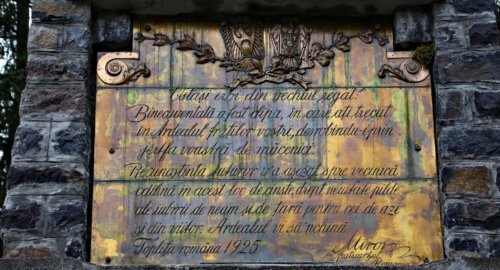 Ostași eroi din vechiul regat:
Binecuvântată a fost clipa, în care ați trecut
în Ardealul fraților voștri, desrobindu-i prin
jertfa voastră de mucenici.
Recunoștința tuturor v-a așezat spre vecinică
odihnă în acest loc de cinste, drept neuitate pilde
ale iubirii de neam și de țară pentru cei de azi
și din viitor. Ardealul vi să închină
Toplița română 1925
Miron
patriarhul